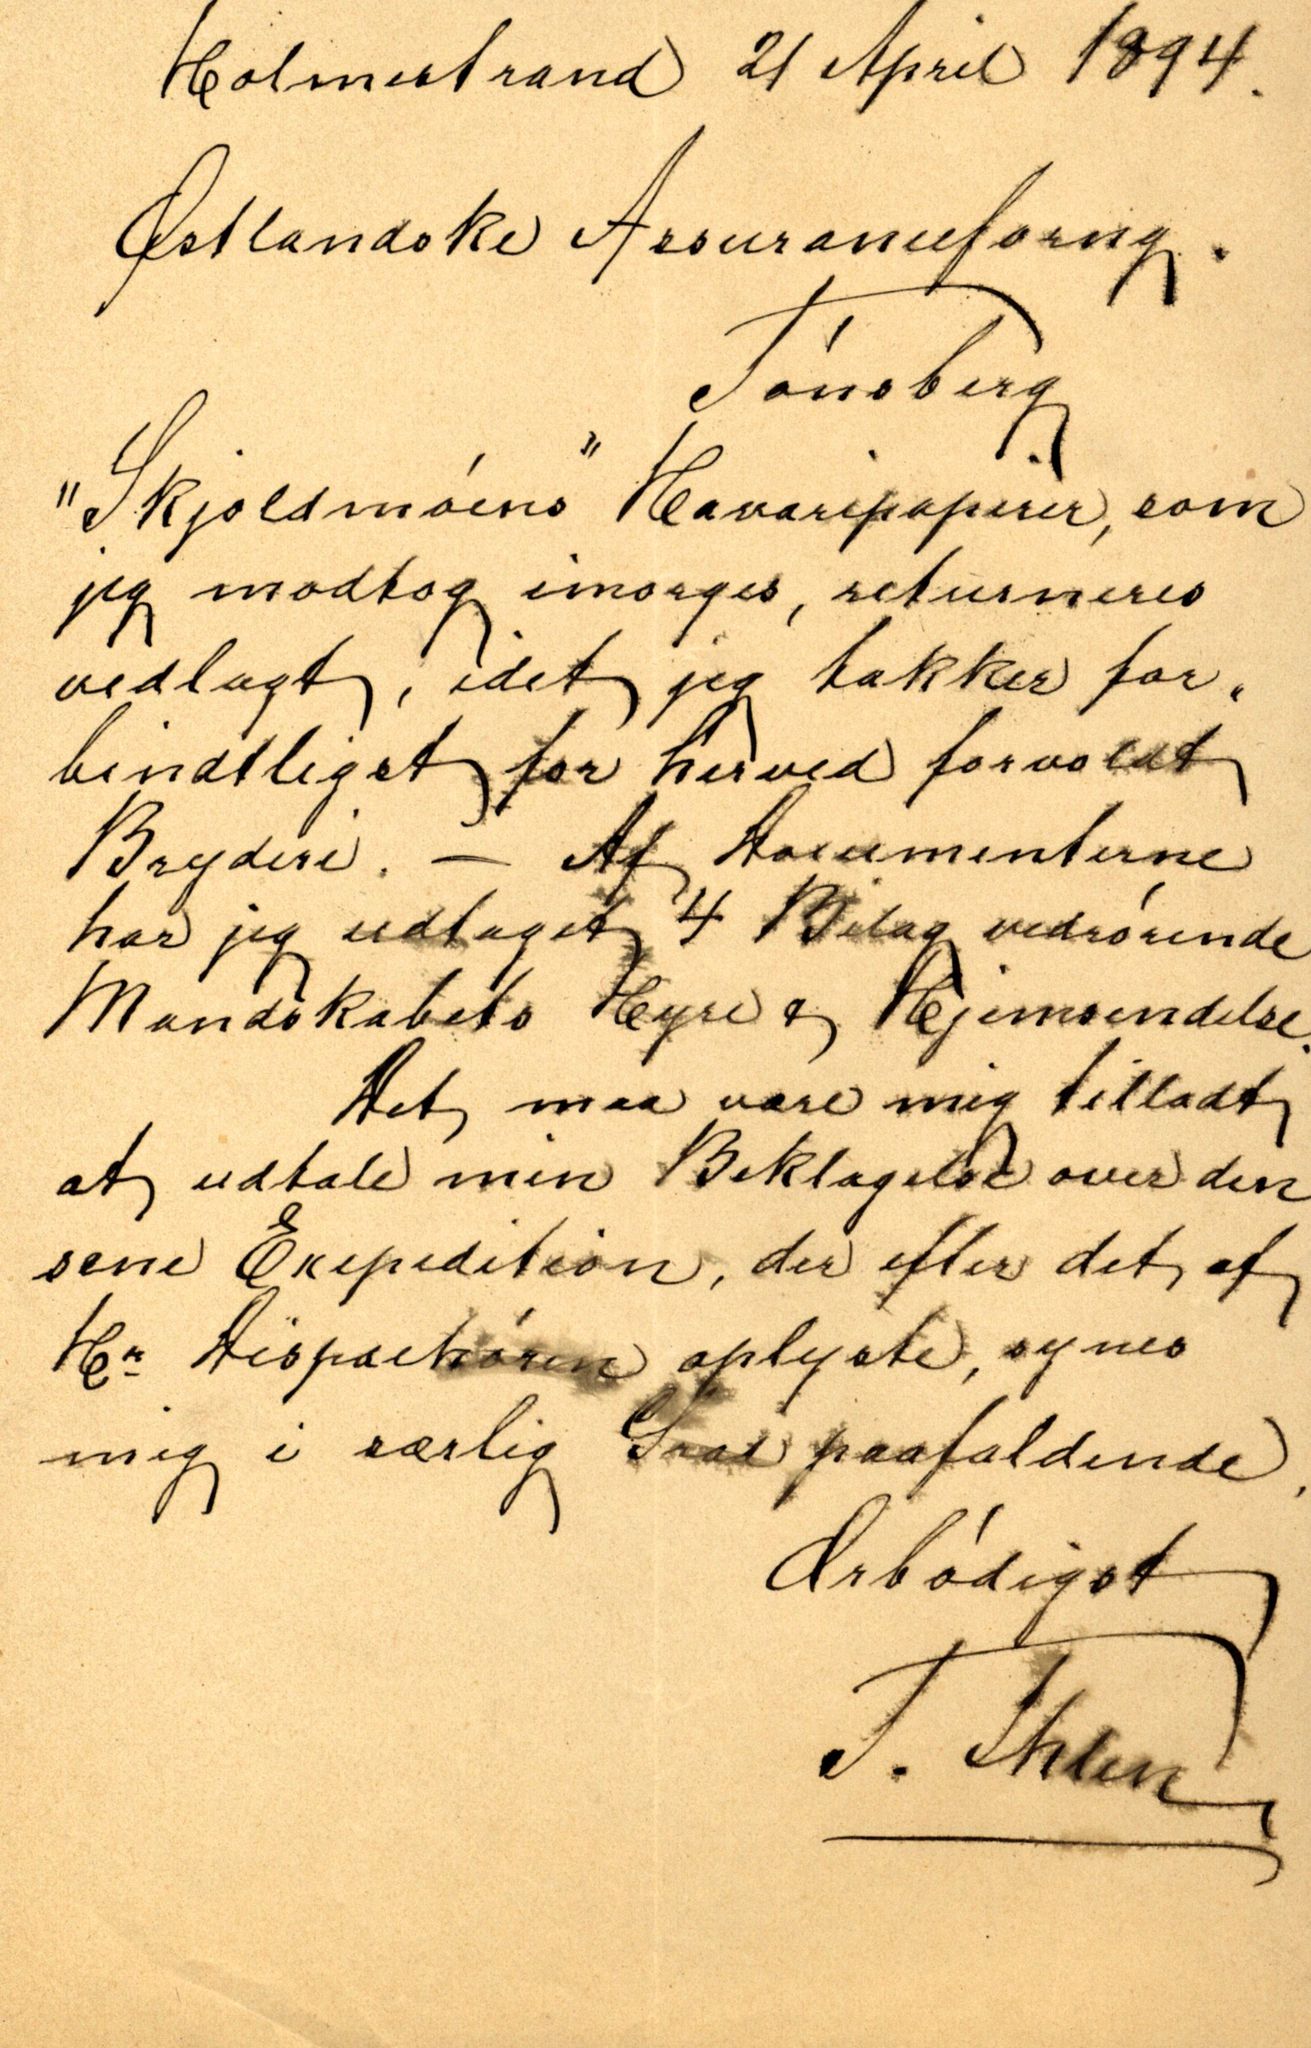 Holmestrand 21 April 1894.
Østlandske Assuranceforng.
Tónsberg
"Skjoldmóens" Havaripapirer, som
jeg modtog imorges, returneres
vedlagt, idet jeg takker for„
bindtligst for herved forvoldt
Bryderi. — Af Documenterne
har jeg udtaget 4 Bilag vedrórende
Mandskabets Hyre & Hjemsendelse.
Det maa være mig tilladt
at udtale min Beklagelse over den
sene Expedition, der efter det af
Hr Dispachóren oplyste, synes
mig i særlig Grad paafaldende.
Ærbódigst
T. Ihlen